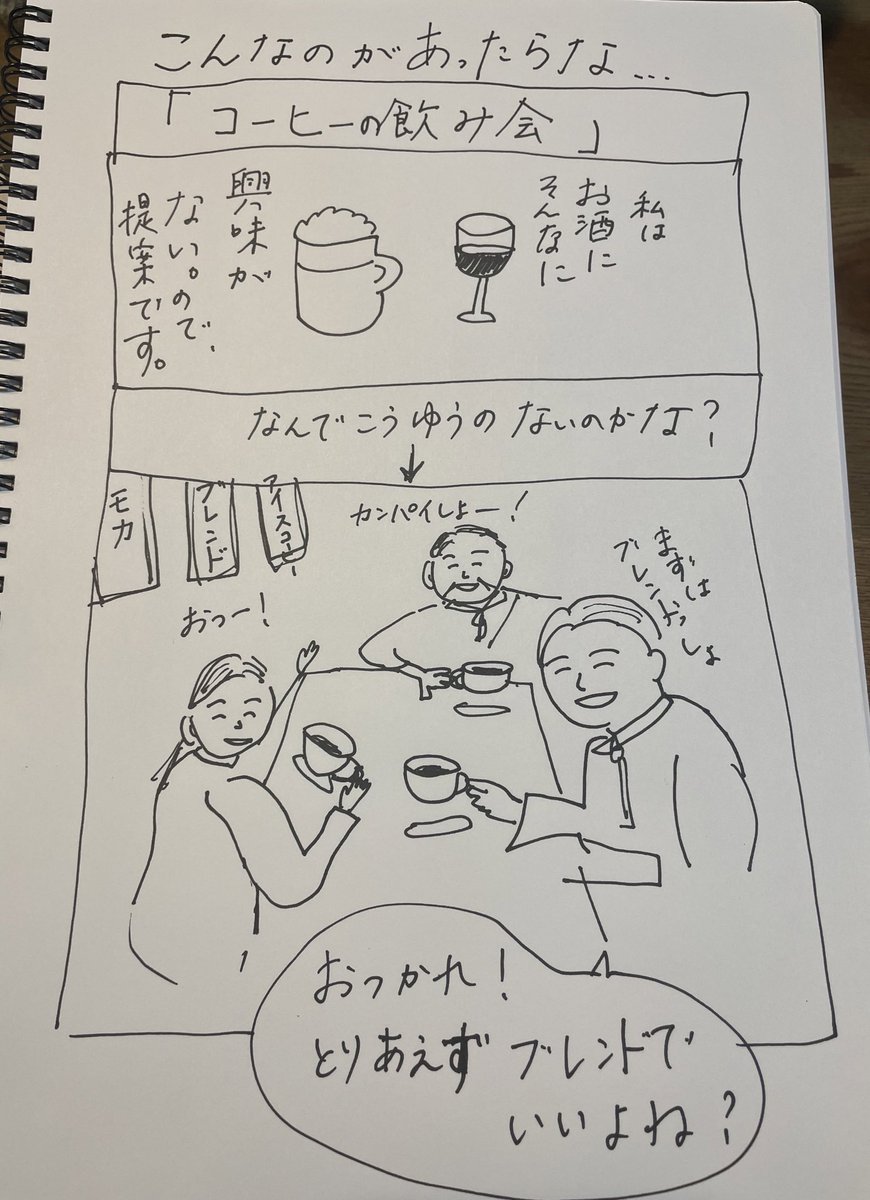 こんなのがあったらな...
「コーヒーの飲み会」
私は
お酒に
そんなに
興味が
ない。ので、
提案です。
なんでこうゆうのないのかな?
モカ
ブレンド
アイスコーヒー
カンパイしよー!
まずは
ブレンドっしょ
おつー!
おつかれ!
とりあえずブレンドで
いいよね?